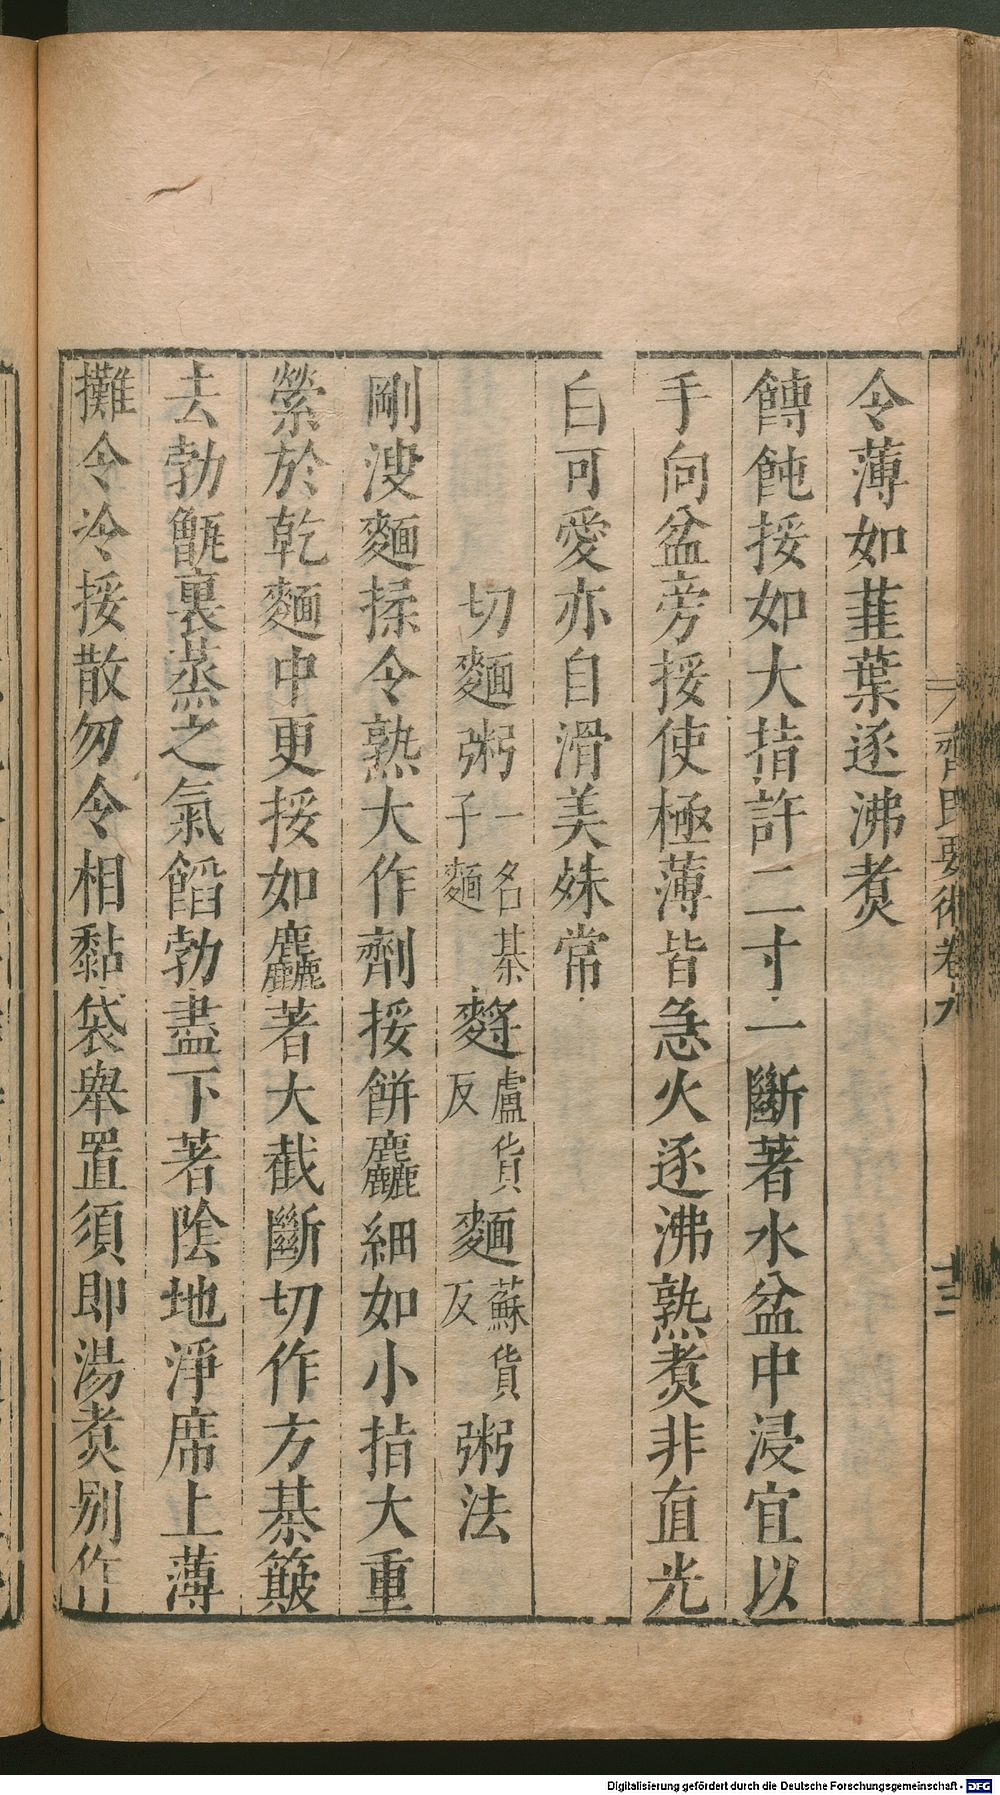 齊民要術卷九
十三
令薄如韮葉逐沸煑
餺飩挼如大指許二寸一斷著水盆中浸宜以
手向盆旁挼使極薄皆急火逐沸熟煑非直光
白可愛亦自滑美殊常
切麵粥一名棊子麵𪌉盧貨反麵蘇貨反粥法
剛溲麵揉令熟大作劑挼餅麤細如小指大重
縈於乾麵中更挼如麤著大截斷切作方棊簸
去勃甑裏蒸之氣餡勃盡下著陰地淨席上薄
攤令冷挼散勿令相黏袋舉置須即湯煑别作
Digitalisierung gefördert durch die Deutsche Forschungsgemeinschaft - DFG